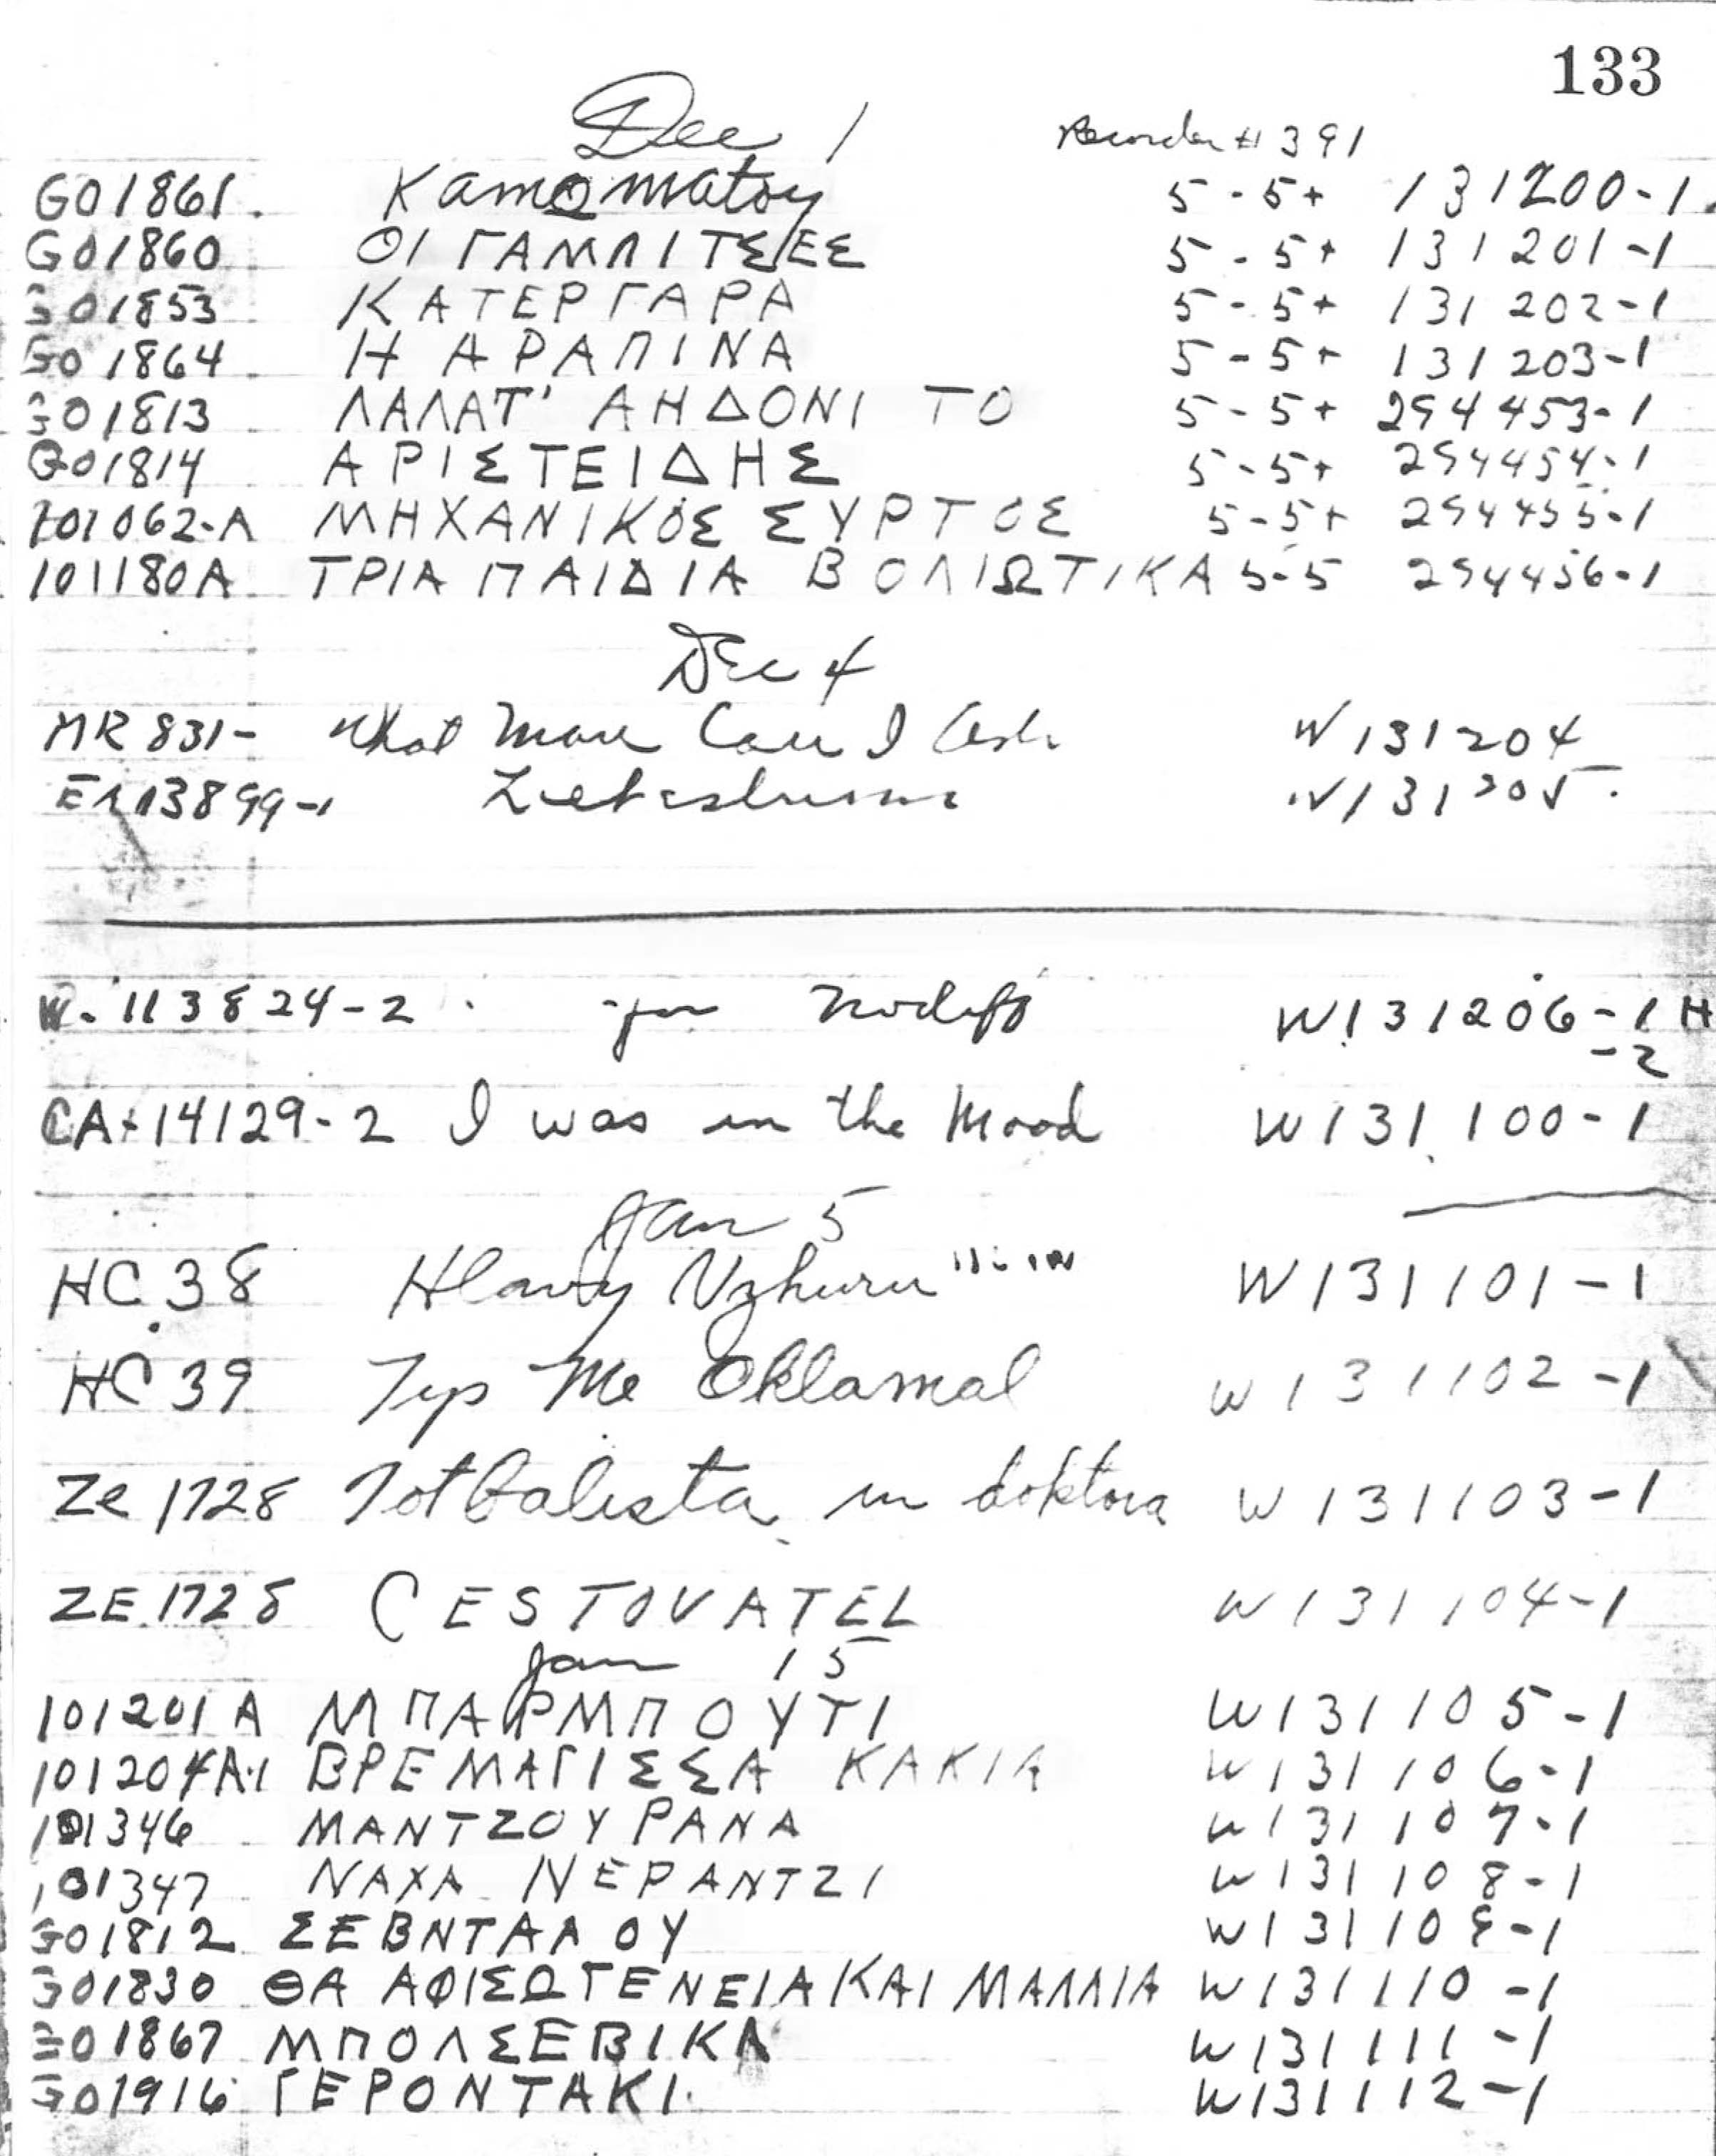 133
Dec 1
Recorder # 391
GO1861. Kamomatou 5-5+ 131200-1.
GO1860 ΟΙ ΓΑΜΠΙΤΣΕΣ 5-5+ 131201-1
GO1853 ΚΑΤΕΡΓΑΡΑ 5-5+ 131202-1
GO1864 Η ΑΡΑΠΙΝΑ 5-5+ 131203-1
GO1813 ΛΑΛΑΤ' ΑΗΔΟΝΙ ΤΟ 5-5+ 294453-1
GO1814 ΑΡΙΣΤΕΙΔΗΣ 5-5+ 294454-1
101062-A ΜΗΧΑΝΙΚΟΣ ΣΥΡΤΟΣ 5-5+ 294455-1
101180A ΤΡΙΑ ΠΑΙΔΙΑ ΒΟΛΙΩΤΙΚΑ 5-5 294456-1
Dec 4
MR 831- What More Can I Ask W131204
13899-1 W131205.
W. 113824-2 W131206-1 H
-2
CA-14129-2 I was in the Mood W131100-1
Jan 5
HC 38 Hlavy Vzhuru W131101-1
HC 39 Tys Me Oklamal W131102-1
Ze 1728 Fotbalista doktora W131103-1
ZE.1728 CESTOVATEL W131104-1
Jan 15
101201A ΜΠΑΡΜΠΟΥΤΙ W131105-1
101204A-1 ΒΡΕ ΜΑΓΙΣΣΑ ΚΑΚΙΑ W131106-1
101346 ΜΑΝΤΖΟΥΡΑΝΑ W131107-1
101347 ΝΑΧΑ ΝΕΡΑΝΤΖΙ W131108-1
GO1812 ΣΕΒΝΤΑΛΟΥ W131109-1
GO1830 ΘΑ ΑΦΙΣΩ ΓΕΝΕΙΑ ΚΑΙ ΜΑΛΛΙΑ W131110-1
GO1867 ΜΠΟΛΣΕΒΙΚΑ W131111-1
GO1916 ΓΕΡΟΝΤΑΚΙ. W131112-1